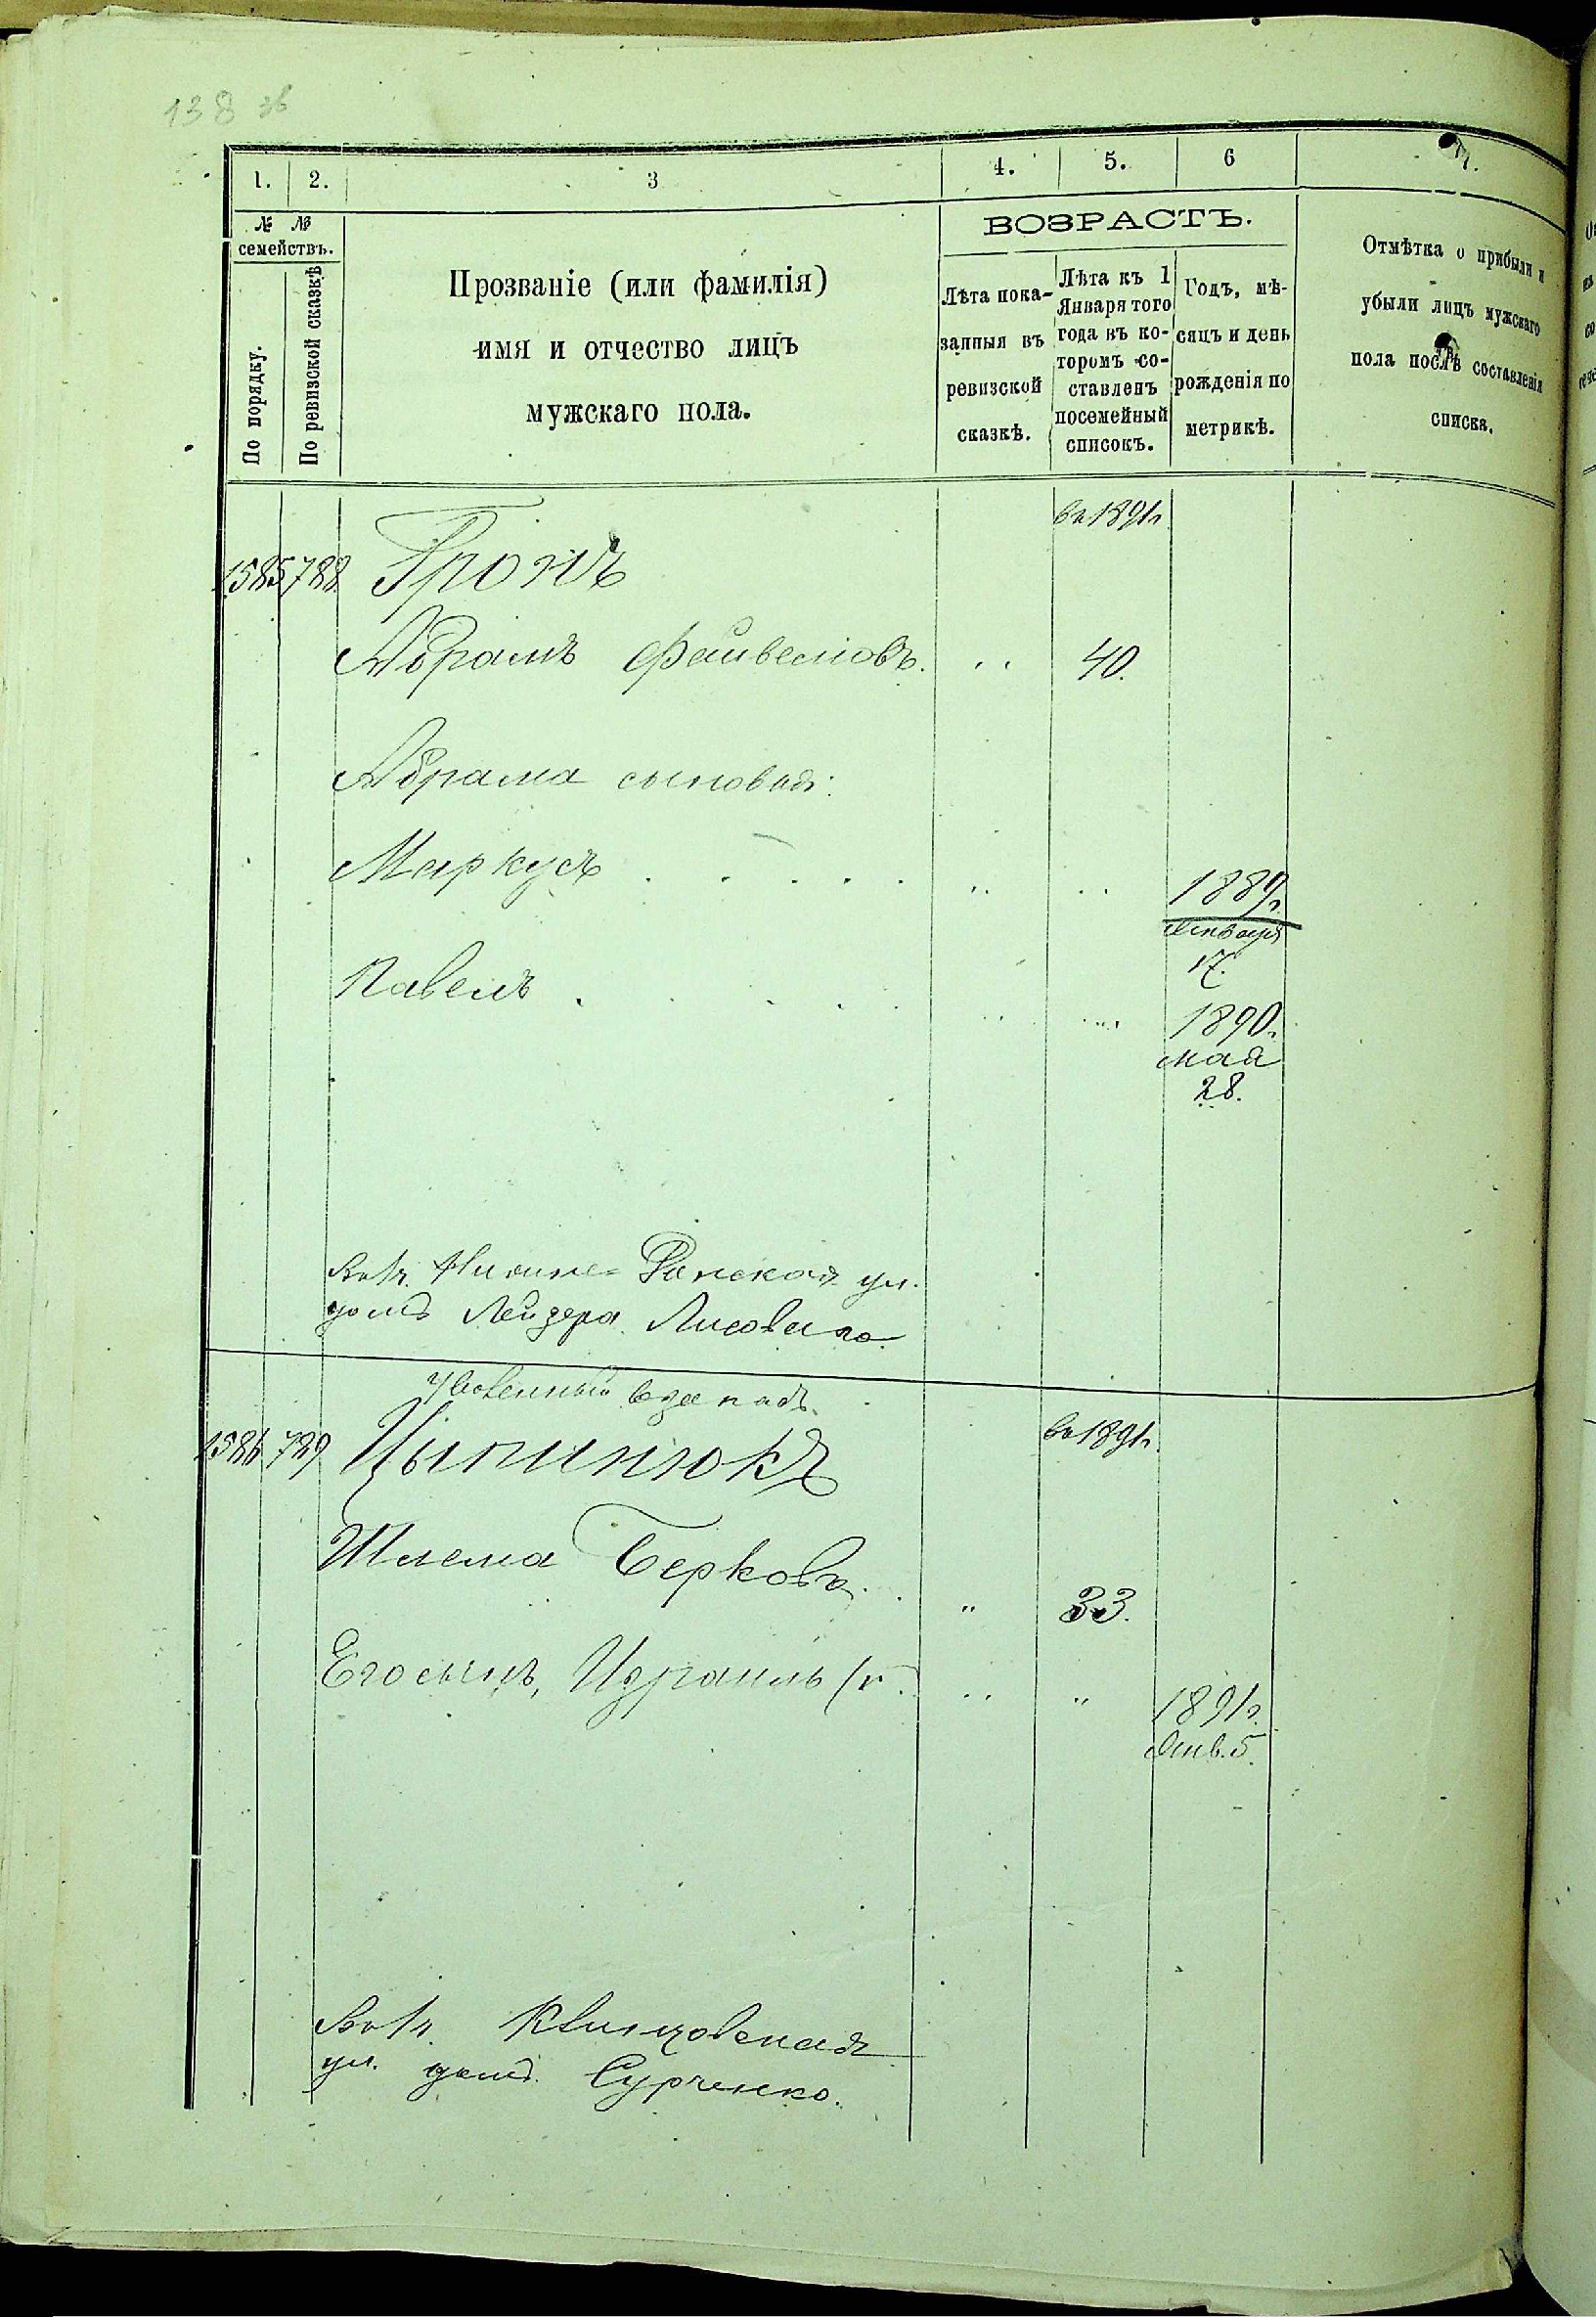 138 зв
1. 2. 3 4. 5. 6 7.
№ №
семействъ.
По порядку.
По ревизской сказкѣ
Прозваніе (или фамилія)
имя и отчество лицъ
мужскаго пола.
ВОЗРАСТЪ.
Лѣта пока-
занныя въ
ревизской
сказкѣ.
Лѣта къ 1
Января того
года въ ко-
торомъ со-
ставленъ
посемейный
списокъ.
Годъ, мѣ-
сяцъ и день
рожденія по
метрикѣ.
Отмѣтка о прибыли и
убыли лицъ мужскаго
пола послѣ составленія
списка.
въ 1891г
1585 788. Гронъ
Абрамъ Файвелювъ. 40.
Абрама сыновья:
Маркусъ . . . . . 1889г.
Января
17.
Павелъ . . . . . 1890г.
мая
28.
ул.
домъ Лейзера Лисоваго
въ 1891г.
1586 789 Цыпинюкъ
Шлема Берковъ. 33.
Его сынъ, Израиль 1891г.
Янв. 5.
ул. домъ Сурченко.